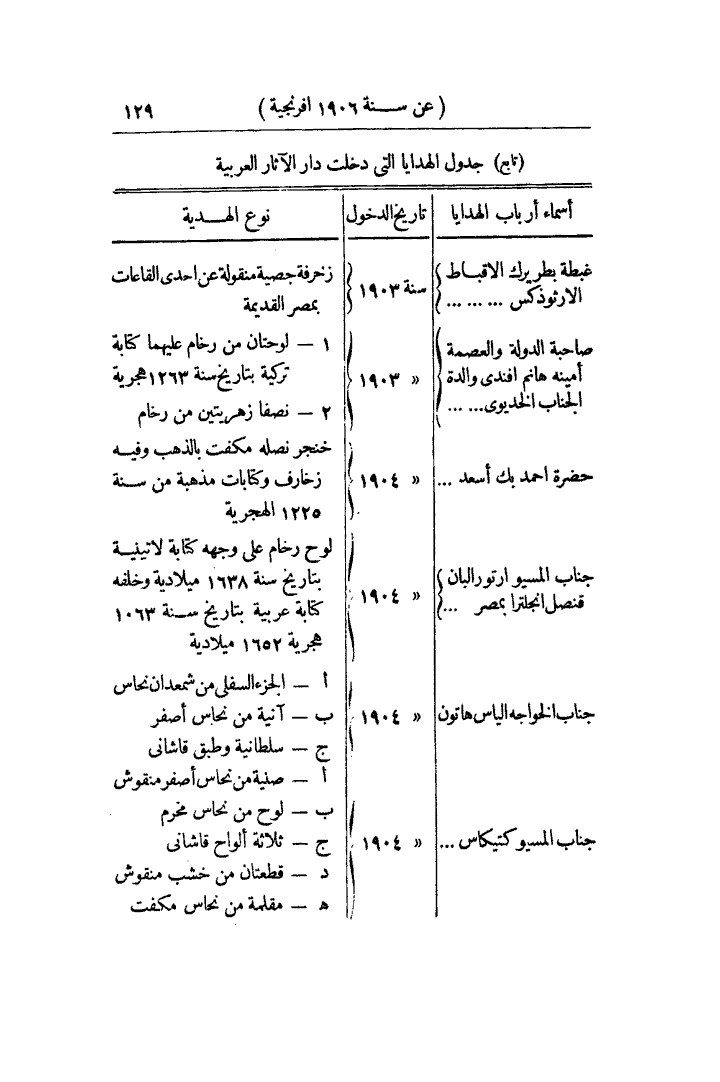 ( عن سنة ١٩٠٦ افرنجية ) ١٢٩
(تابع) جدول الهدايا التى دخلت دار الآثار العربية
أسماء أرباب الهدايا
تاريخ الدخول
نوع الهدية
غبطة بطريرك الاقباط
الارثوذكس ... ... ...
سنة ١٩٠٣
زخرفة جصية منقولة عن احدى القاعات
بمصر القديمة
صاحبة الدولة والعصمة
أمينه هانم افندى والدة
الجناب الخديوى... ...
« ١٩٠٣
١ — لوحتان من رخام عليهما كتابة
تركية بتاريخ سنة ١٢٦٣ هجرية
٢ — نصفا زهريتين من رخام
حضرة احمد بك أسعد ...
« ١٩٠٤
خنجر نصله مكفت بالذهب وفيه
زخارف وكتابات مذهبة من سنة
١٢٢٥ الهجرية
جناب المسيو ارتور البان
قنصل انجلترا بمصر ...
« ١٩٠٤
لوح رخام على وجهه كتابة لاتينية
بتاريخ سنة ١٦٣٨ ميلادية وخلفه
كتابة عربية بتاريخ سنة ١٠٦٣
هجرية ١٦٥٢ ميلادية
جناب الخواجه الياس هاتون
« ١٩٠٤
أ — الجزء السفلى من شمعدان نحاس
ب — آنية من نحاس أصفر
ج — سلطانية وطبق قاشانى
جناب المسيو كتيكاس ...
« ١٩٠٤
أ — صنية من نحاس أصفر منقوش
ب — لوح من نحاس مخرم
ج — ثلاثة ألواح قاشانى
د — قطعتان من خشب منقوش
ه — مقلمة من نحاس مكفت